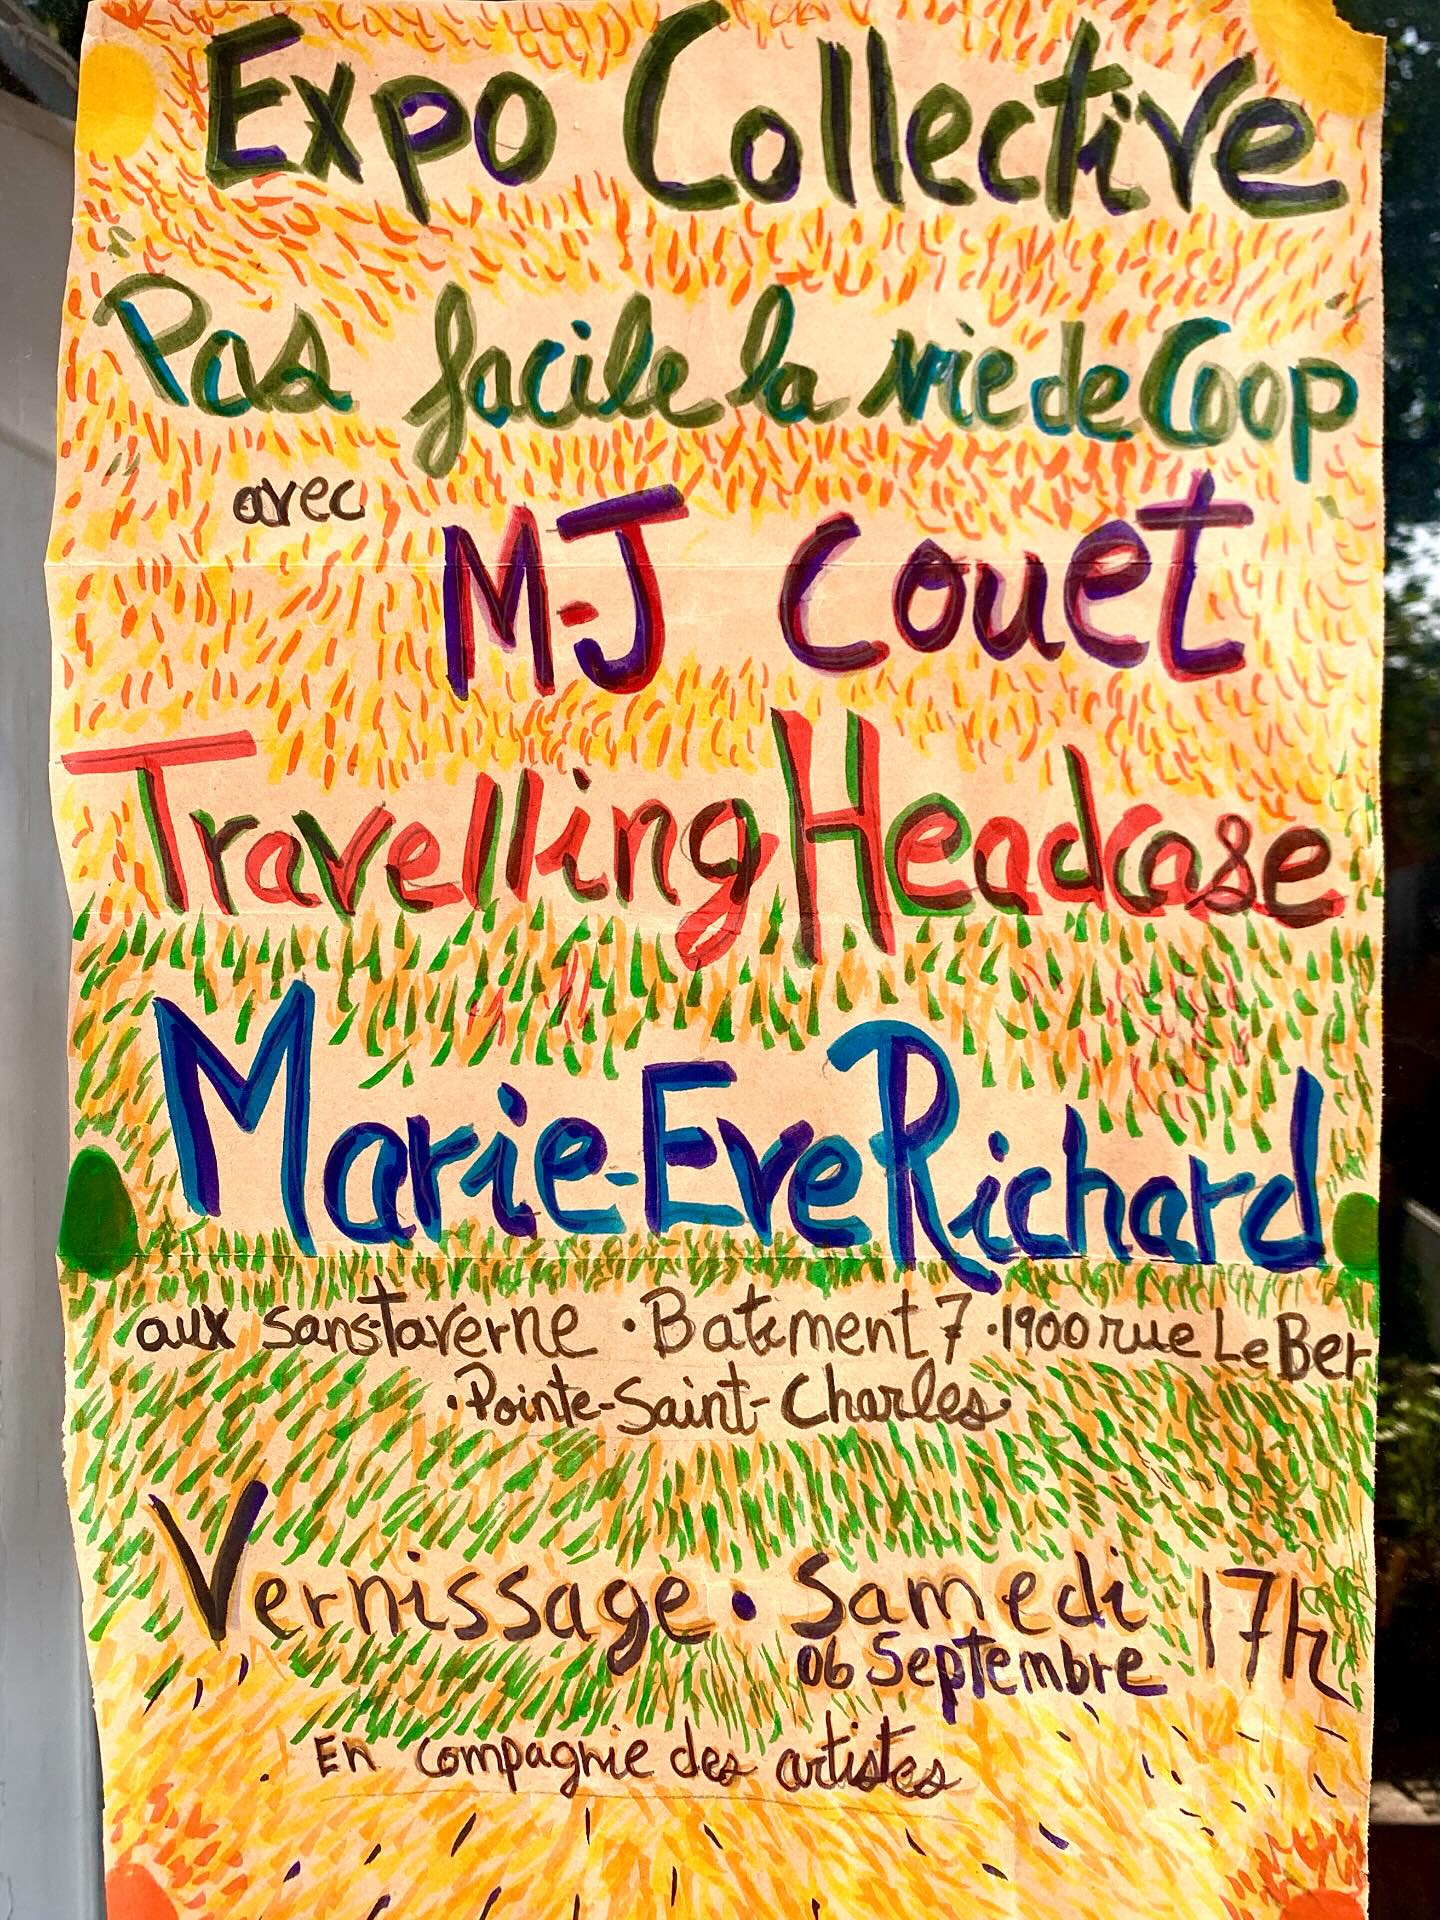 Expo Collective
Pas facile la vie de Coop
avec
M-J Couet
Travelling Headcase
Marie-Eve Richard
aux sans-taverne • Batiment 7 • 1900 rue Le Ber
• Pointe-Saint-Charles •
Vernissage • Samedi 17h
06 Septembre
En compagnie des artistes